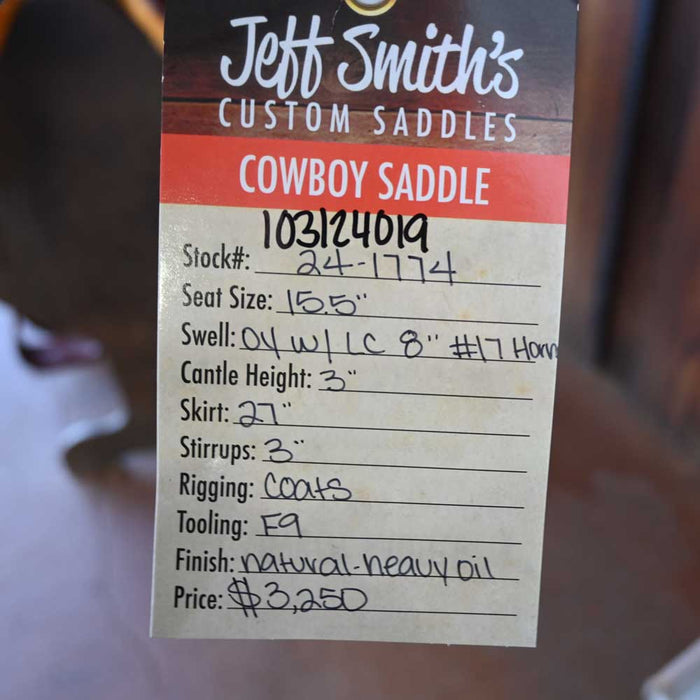 Jeff Smith's
CUSTOM SADDLES
COWBOY SADDLE
103124019
Stock#: 24-1774
Seat Size: 15.5"
Swell: OY w/ LC 8" #17 Horn
Cantle Height: 3"
Skirt: 27"
Stirrups: 3"
Rigging: Coats
Tooling: F9
Finish: natural-heavy oil
Price: $3,250